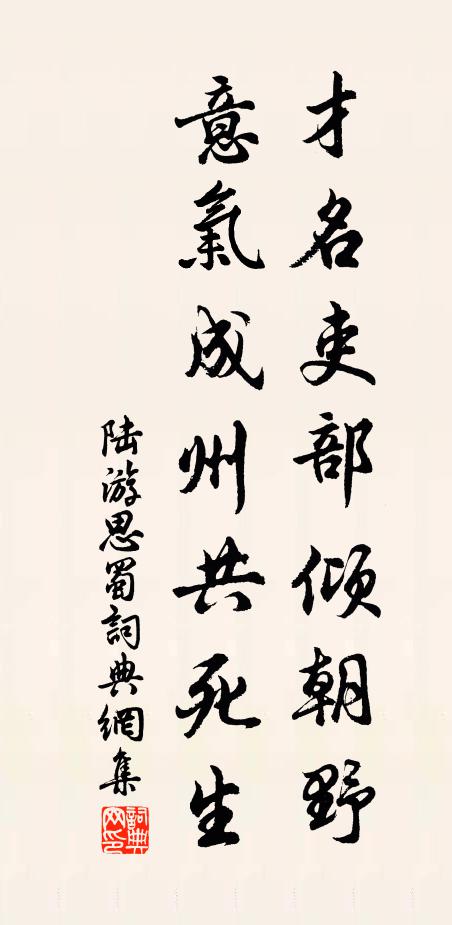 才名吏部倾朝野
意氣成州共死生
陆游思蜀詞典網集
詞典
网印